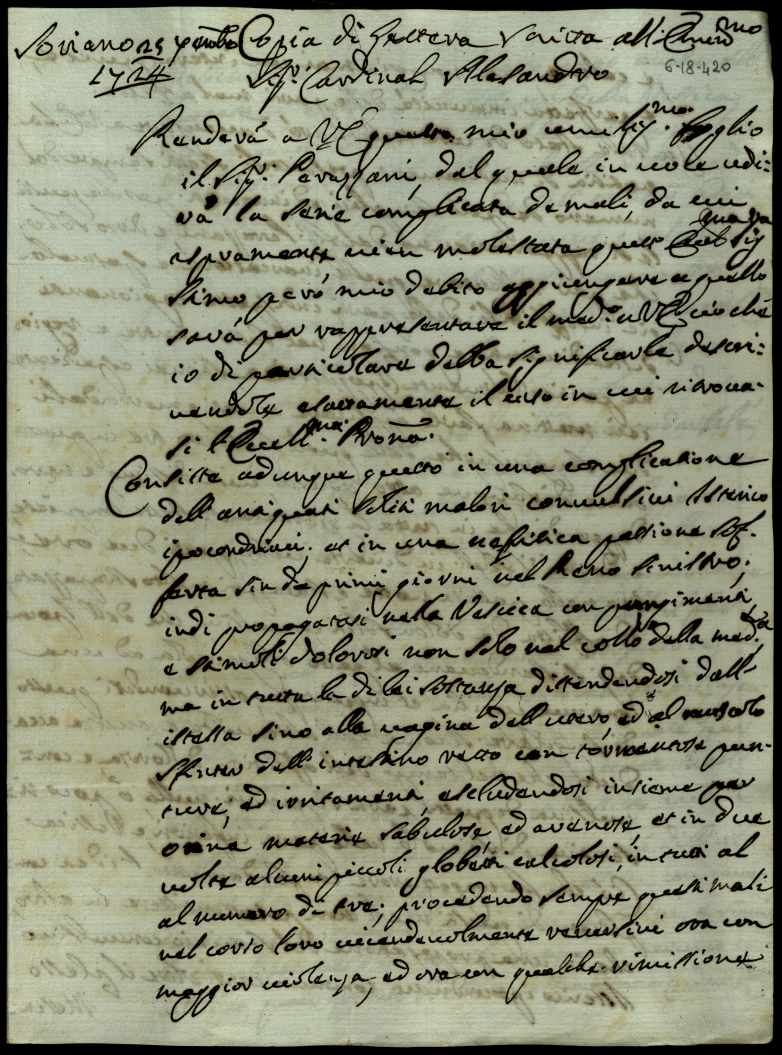 Soriano 25 7embre Copia di Lettera scritta all'Emin.mo
1724 Sig.r Cardinal Alesandro
6-18-420
Renderà a VE questo mio umiliss.mo foglio
il Sig.r Perazzani, dal quale in voce udi:
rà la serie complicata de mali, da cui
aspramente vien molestata quest' Eccel.ma Sig.ra
Stimo però mio debito aggiungere a quello
sarà per rappresentare il med.o a VE ciò che
io di particolare debba significarle descri:
vendole esattamente il caso in cui ritrova-
si l'Eccell.ma Pròna.
Consiste adunque questo in una complicatione
dell' antiquati soliti malori convulsivi Isterico
ipocondriaci, et in una nefritica passione sof-
ferta sin da primi giorni nel Rene sinistro,
indi propagatasi nella Vesicca con pungimenti,
e stimoli dolorosi non solo nel collo della med.ma,
ma in tutta la di lei sostanza distendendosi dall'
istessa sino alla vagina dell' utero, ed al muscolo
Sfinter dell' intestino retto con tormentose pun-
ture, ed irritamenti, escludendosi insieme per
orina materie sabulose, ed arenose, et in due
volte alcuni piccoli globetti calcolosi, in tutti al
al numero di tre; procedendo sempre questi mali
nel corso loro vicendevolmente ora con
maggior violenza, ed ora con qualche rimissione